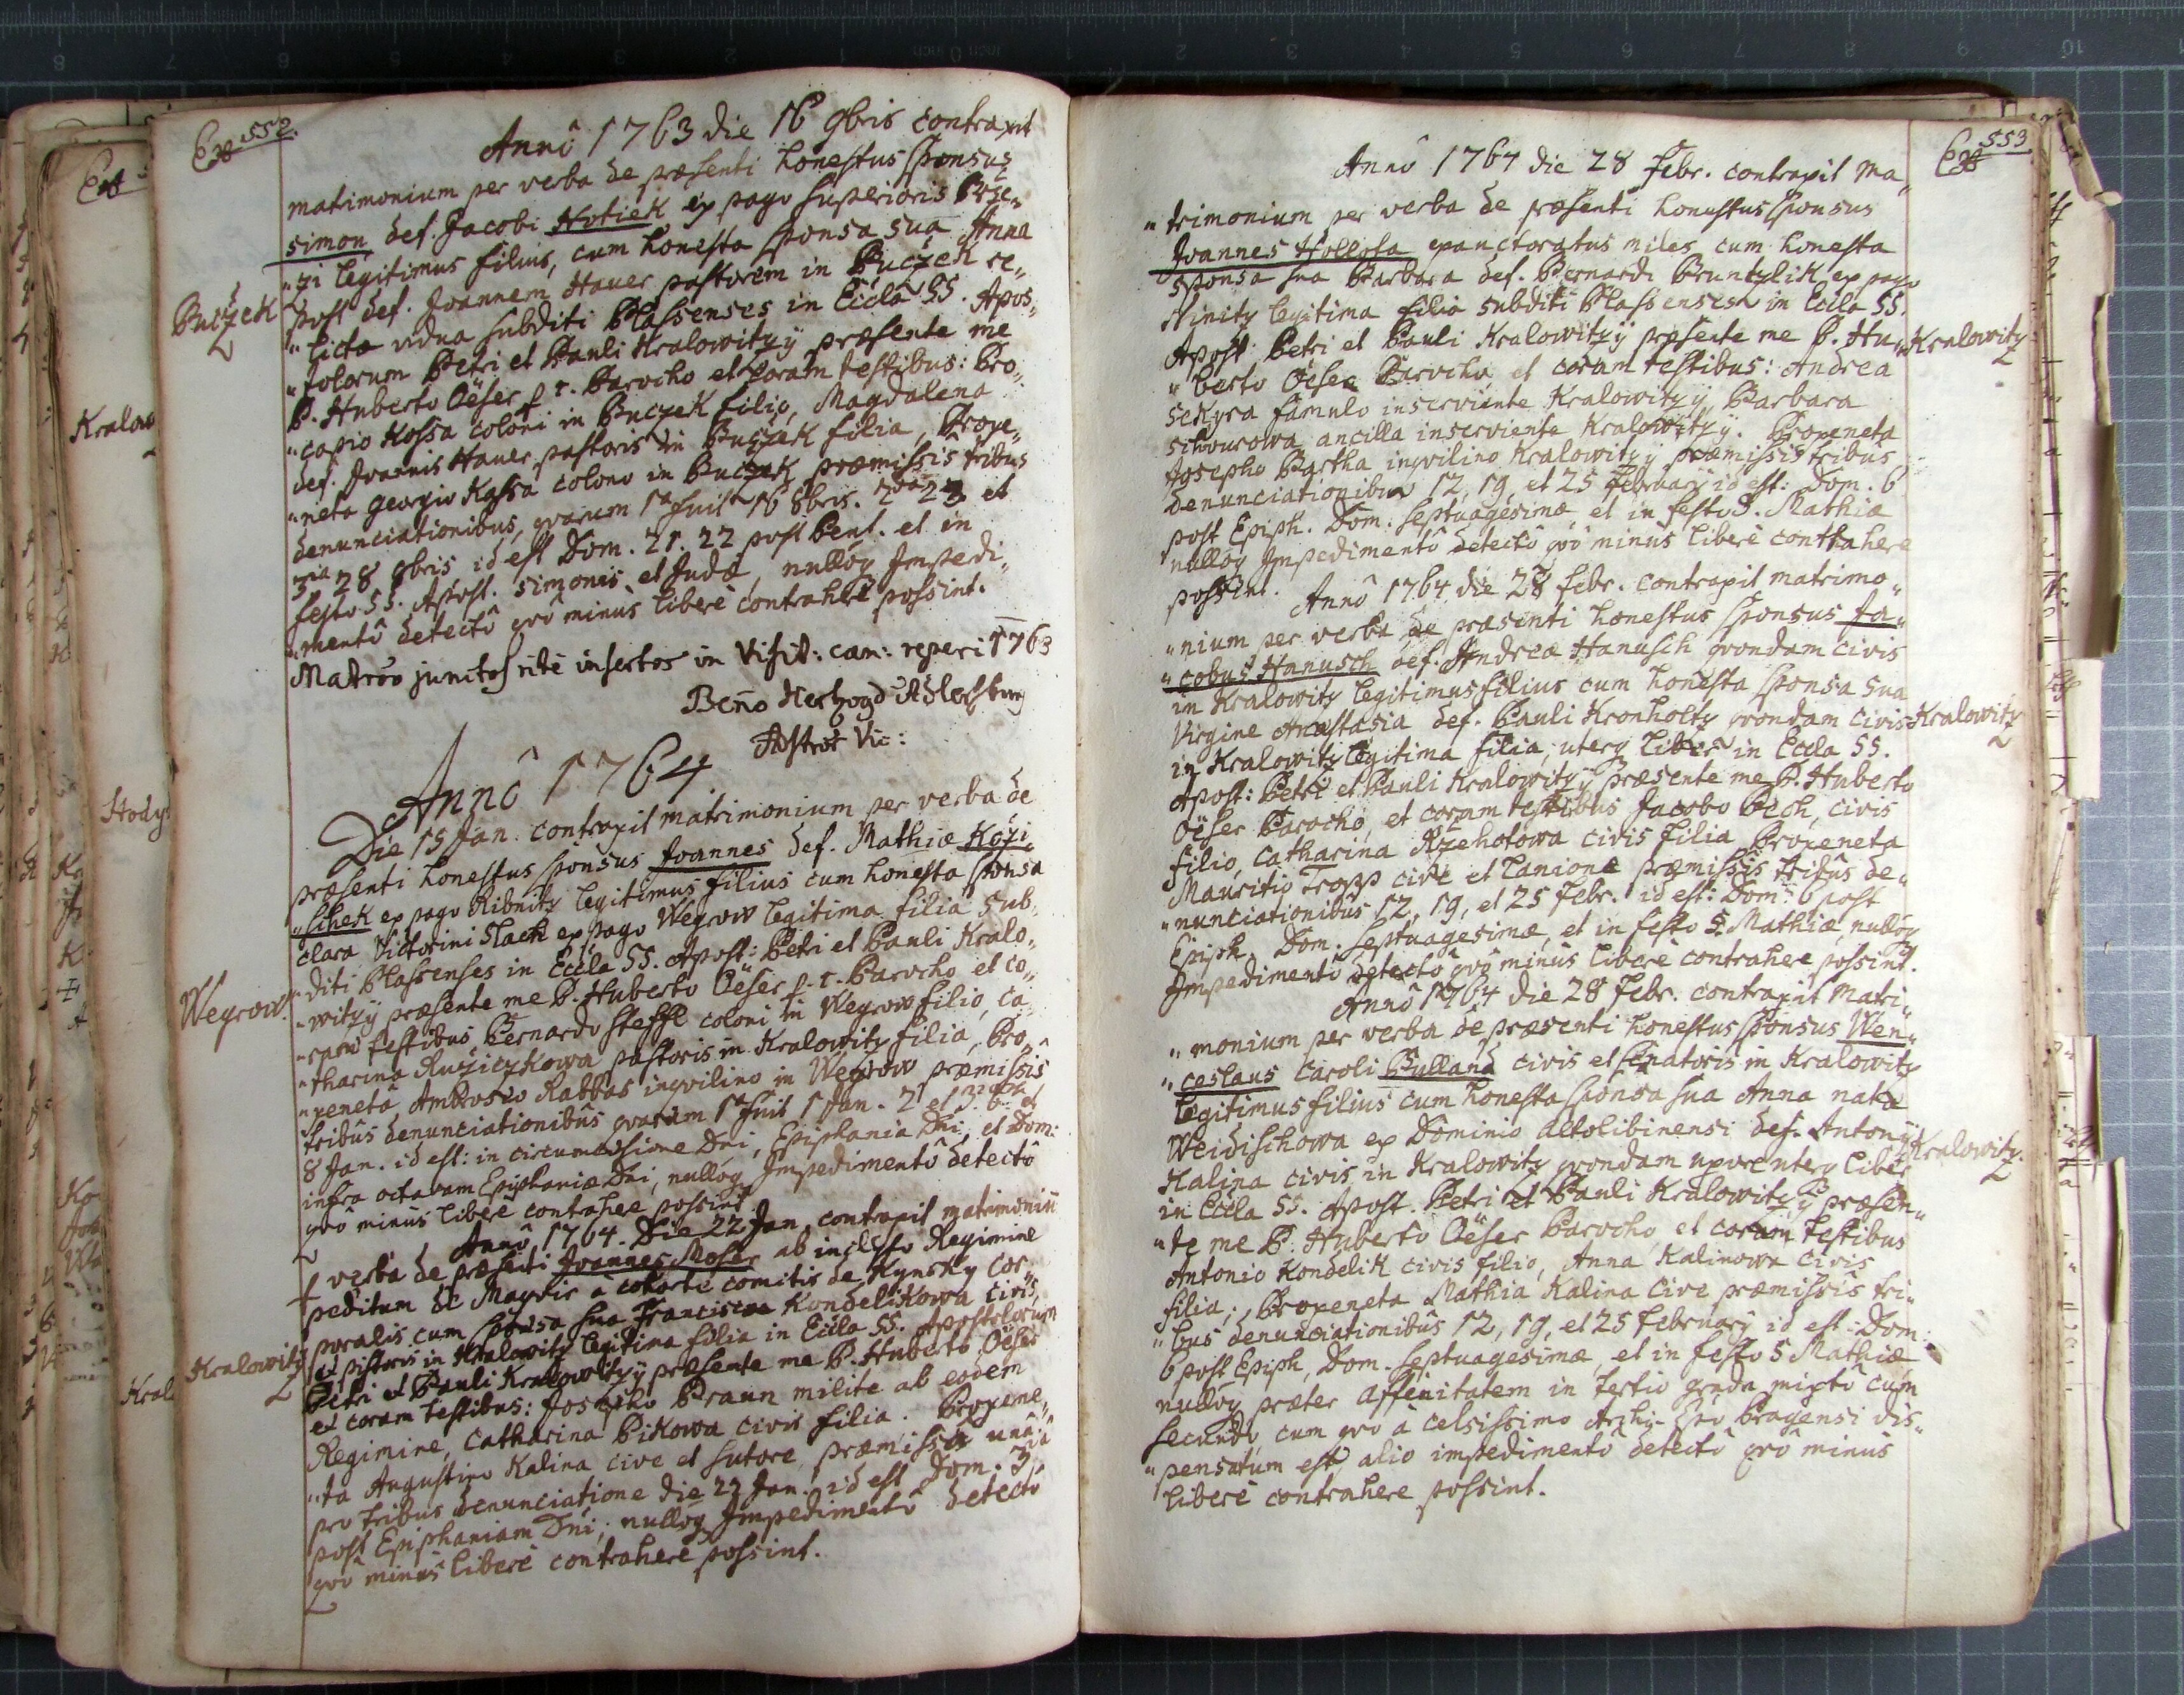 552.
Annô 1763 die 16 9bris contraxit
matrimonium per verba de præsenti honestus sponsus
Simon def. Jacobi Hotiek ex pago superioris Brże„
„zi legitimus filius, cum honesta sponsa sua Anna
post def. Joannem Hauer pastorem in Buczek re„
„licta vidua subditi Plassenses in Eccla SS. Apos„
„tolorum Petri et Pauli Kralowitzij præsente me
P. Huberto Oëser p. t. Parocho et coram testibus: Pro„
„copio Kossa coloni in Buczek filio, Magdalena
def. Joannis Hauer pastoris in Buczek filia, Proxe„
„neta Georgio Kossa colono in Buczek præmissis tribus
denunciationibus, quarum 1ma fuit 16 8bris. 2da 23 et
3tia 28 8bris id est Dom. 21. 22 post Pent. et in
festo SS. Apost. Simonis et Judæ, nulloq Impedi„
„mentô detectô quô minus liberè contrahere possint.
Buczek
Matrio junctos ritè insertos in Visit: can: reperi 1763
Beno Hertzog
Vic:
Annô 1764
Die 15 Jan. contraxit matrimonium per verba de
præsenti honestus sponsus Joannes def. Mathiæ Kozi„
„schek ex pago Ribnitz legitimus filius cum honesta sponsa
Clara Victorini Slach ex pago Wegrow legitima filia sub„
„diti Plassenses in Eccla SS. Apost: Petri et Pauli Kralo„
„witzij præsente me P. Huberto Oëser p. t. Parocho et co„
„ram testibus Bernardo Steffl coloni in Wegrow filio, Ca„
„tharina Ružiczkowa pastoris in Kralowitz filia, Pro„
„xenetâ Ambrosio Rabbas inqvilino in Wegrow præmissis
tribus denunciationibus quarum 1ma fuit 1 Jan. 2 et 3. 6 et
8 Jan. id est: in circumcisione Dni, Epiphania Dni, et Dom:
infra octavam Epiphaniæ Dni, nulloq Impedimentô detectô
quô minus liberè contrahere possint.
Wegrow
Annô 1764. Die 22 Jan. contraxit matrimoniũ
verba de præsenti Joannes Moser ab inclyto Regimine
peditum de Maydis à cohorte comitis de Kynsky Cor„
„poralis cum sponsa sua Francisca Kondelikowa civis,
et pistoris in Kralowitz legitima filia in Eccla SS. Apostolorum
Petri et Pauli Kralowitzij præsente me P. Huberto Oëser
et coram testibus: Josepho Braun milite ab eodem
Regimine, Catharina Pikowa civis filia. Proxene„
„ta Augustino Kalina cive et sutore, præmissâ unâ
pro tribus denunciatione die 22 Jan. id est Dom. 3tia
post Epiphaniam Dni, nulloq Impedimentô detectô
quô minus liberè contrahere possint.
Kralowitz
553
Annô 1764 die 28 Febr. contraxit ma„
„trimonium per verba de præsenti honestus sponsus
Joannes Hollota exauctoratus miles cum honesta
sponsa sua Barbara def. Bernardi Bruntzlik ex pago
Hinitz legitima filia subditi Plassensis in Eccla SS.
Apost. Petri et Pauli Kralowitzij præsente me P. Hu„
„berto Oëser Parocho, et coram testibus: Andrea
Sekyra famulo inserviente Kralowitzij, Barbara
Schourowa ancilla inserviente Kralowitzij. Proxeneta
Josepho Bartha inqvilino Kralowitzij præmissis tribus
denunciationibus 12, 19, et 25 Februarij id est: Dom. 6
post Epiph. Dom: Septuagesimæ, et in festo S. Mathiæ
nulloq Impedimentô detectô quô minus liberè contrahere
possint.
Kralowitz
Annô 1764 die 28 febr. contraxit matrimo„
„nium per verba de præsenti honestus sponsus Ja„
„cobus Hanusch def. Andreæ Hanusch quondam civis
in Kralowitz legitimus filius cum honesta sponsa sua
Virgine Anastasia def. Pauli Kronholtz quondam civis
in Kralowitz legitima filia, uterq liber in Eccla SS.
Apost: Petri et Pauli Kralowitzij præsente me P. Huberto
Oëser Parocho, et coram testibus Jacobo Pech, civis
filio, Catharina Rzehotowa civis filia Proxeneta
Mauritio Tropp cive et lanione præmissis tribus de„
„nunciationibus 12, 19, et 25 Febr. id est: Dom: 6 post
Epiph. Dom. Septuagesimæ, et in festo S. Mathiæ, nulloq
Impedimentô detectô quô minus liberè contrahere possint.
Kralowitz
Annô 1764 die 28 Febr. contraxit Matri„
„monium per verba de præsenti honestus sponsus Wen„
„ceslaus Caroli Bulland civis et senatoris in Kralowitz
legitimus filius cum honesta sponsa sua Anna nata
Weidischowa ex Dominio altolibinensi def. Antonij
Kalina civis in Kralowitz quondam uxor uterq liber
in Eccla SS. Apost. Petri et Pauli Kralowitzij præsen„
„te me P. Huberto Oëser Parocho, et coram testibus
Antonio Kondelik civis filio, Anna Kalinowa civis
filia; Proxeneta Mathia Kalina cive præmissis tri„
„bus denunciationibus 12, 19, et 25 Februarij id est: Dom:
6 post Epiph, Dom. Septuagesimæ, et in festo S Mathiæ
nulloq præter affinitatem in tertio gradu mixto cum
secundo, cum quo à celsissimo Archi-Epo Pragensi dis„
„pensatum est, alio impedimentô detectô quô minus
liberè contrahere possint.
Kralowitz.